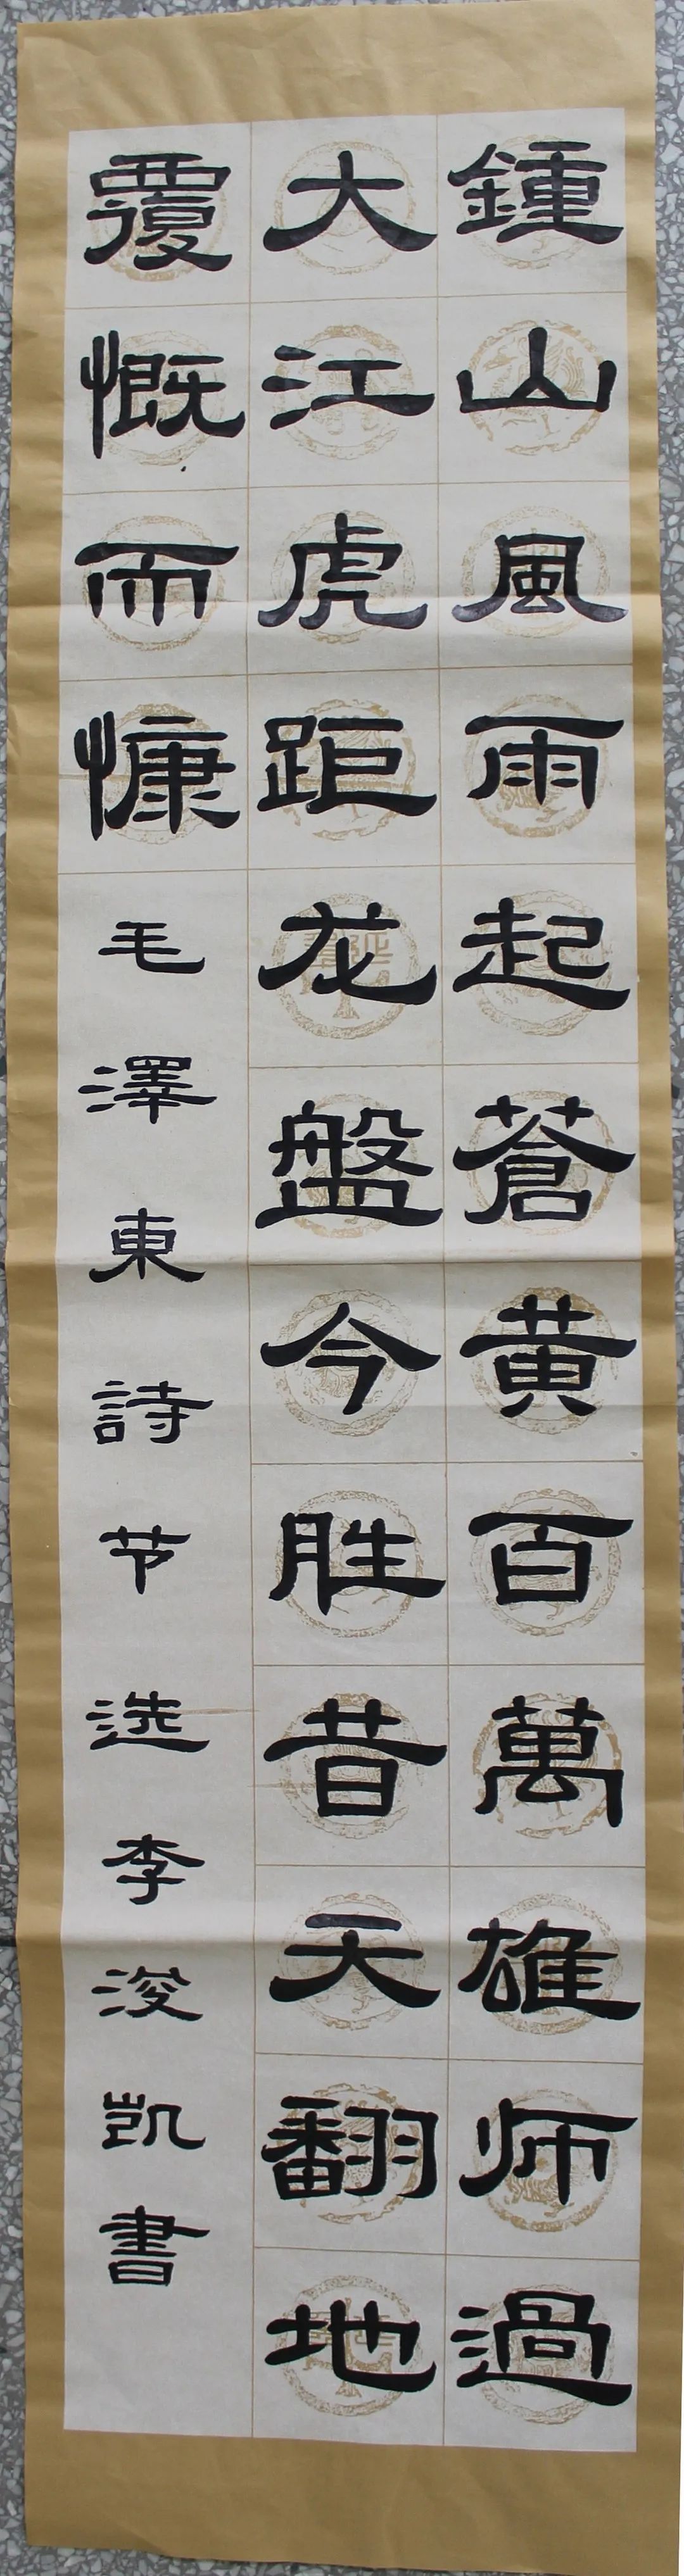 鍾山風雨起蒼黄百萬雄师過
大江虎距龙盤今胜昔天翻地
覆慨而慷毛澤東詩节选李浚凯書